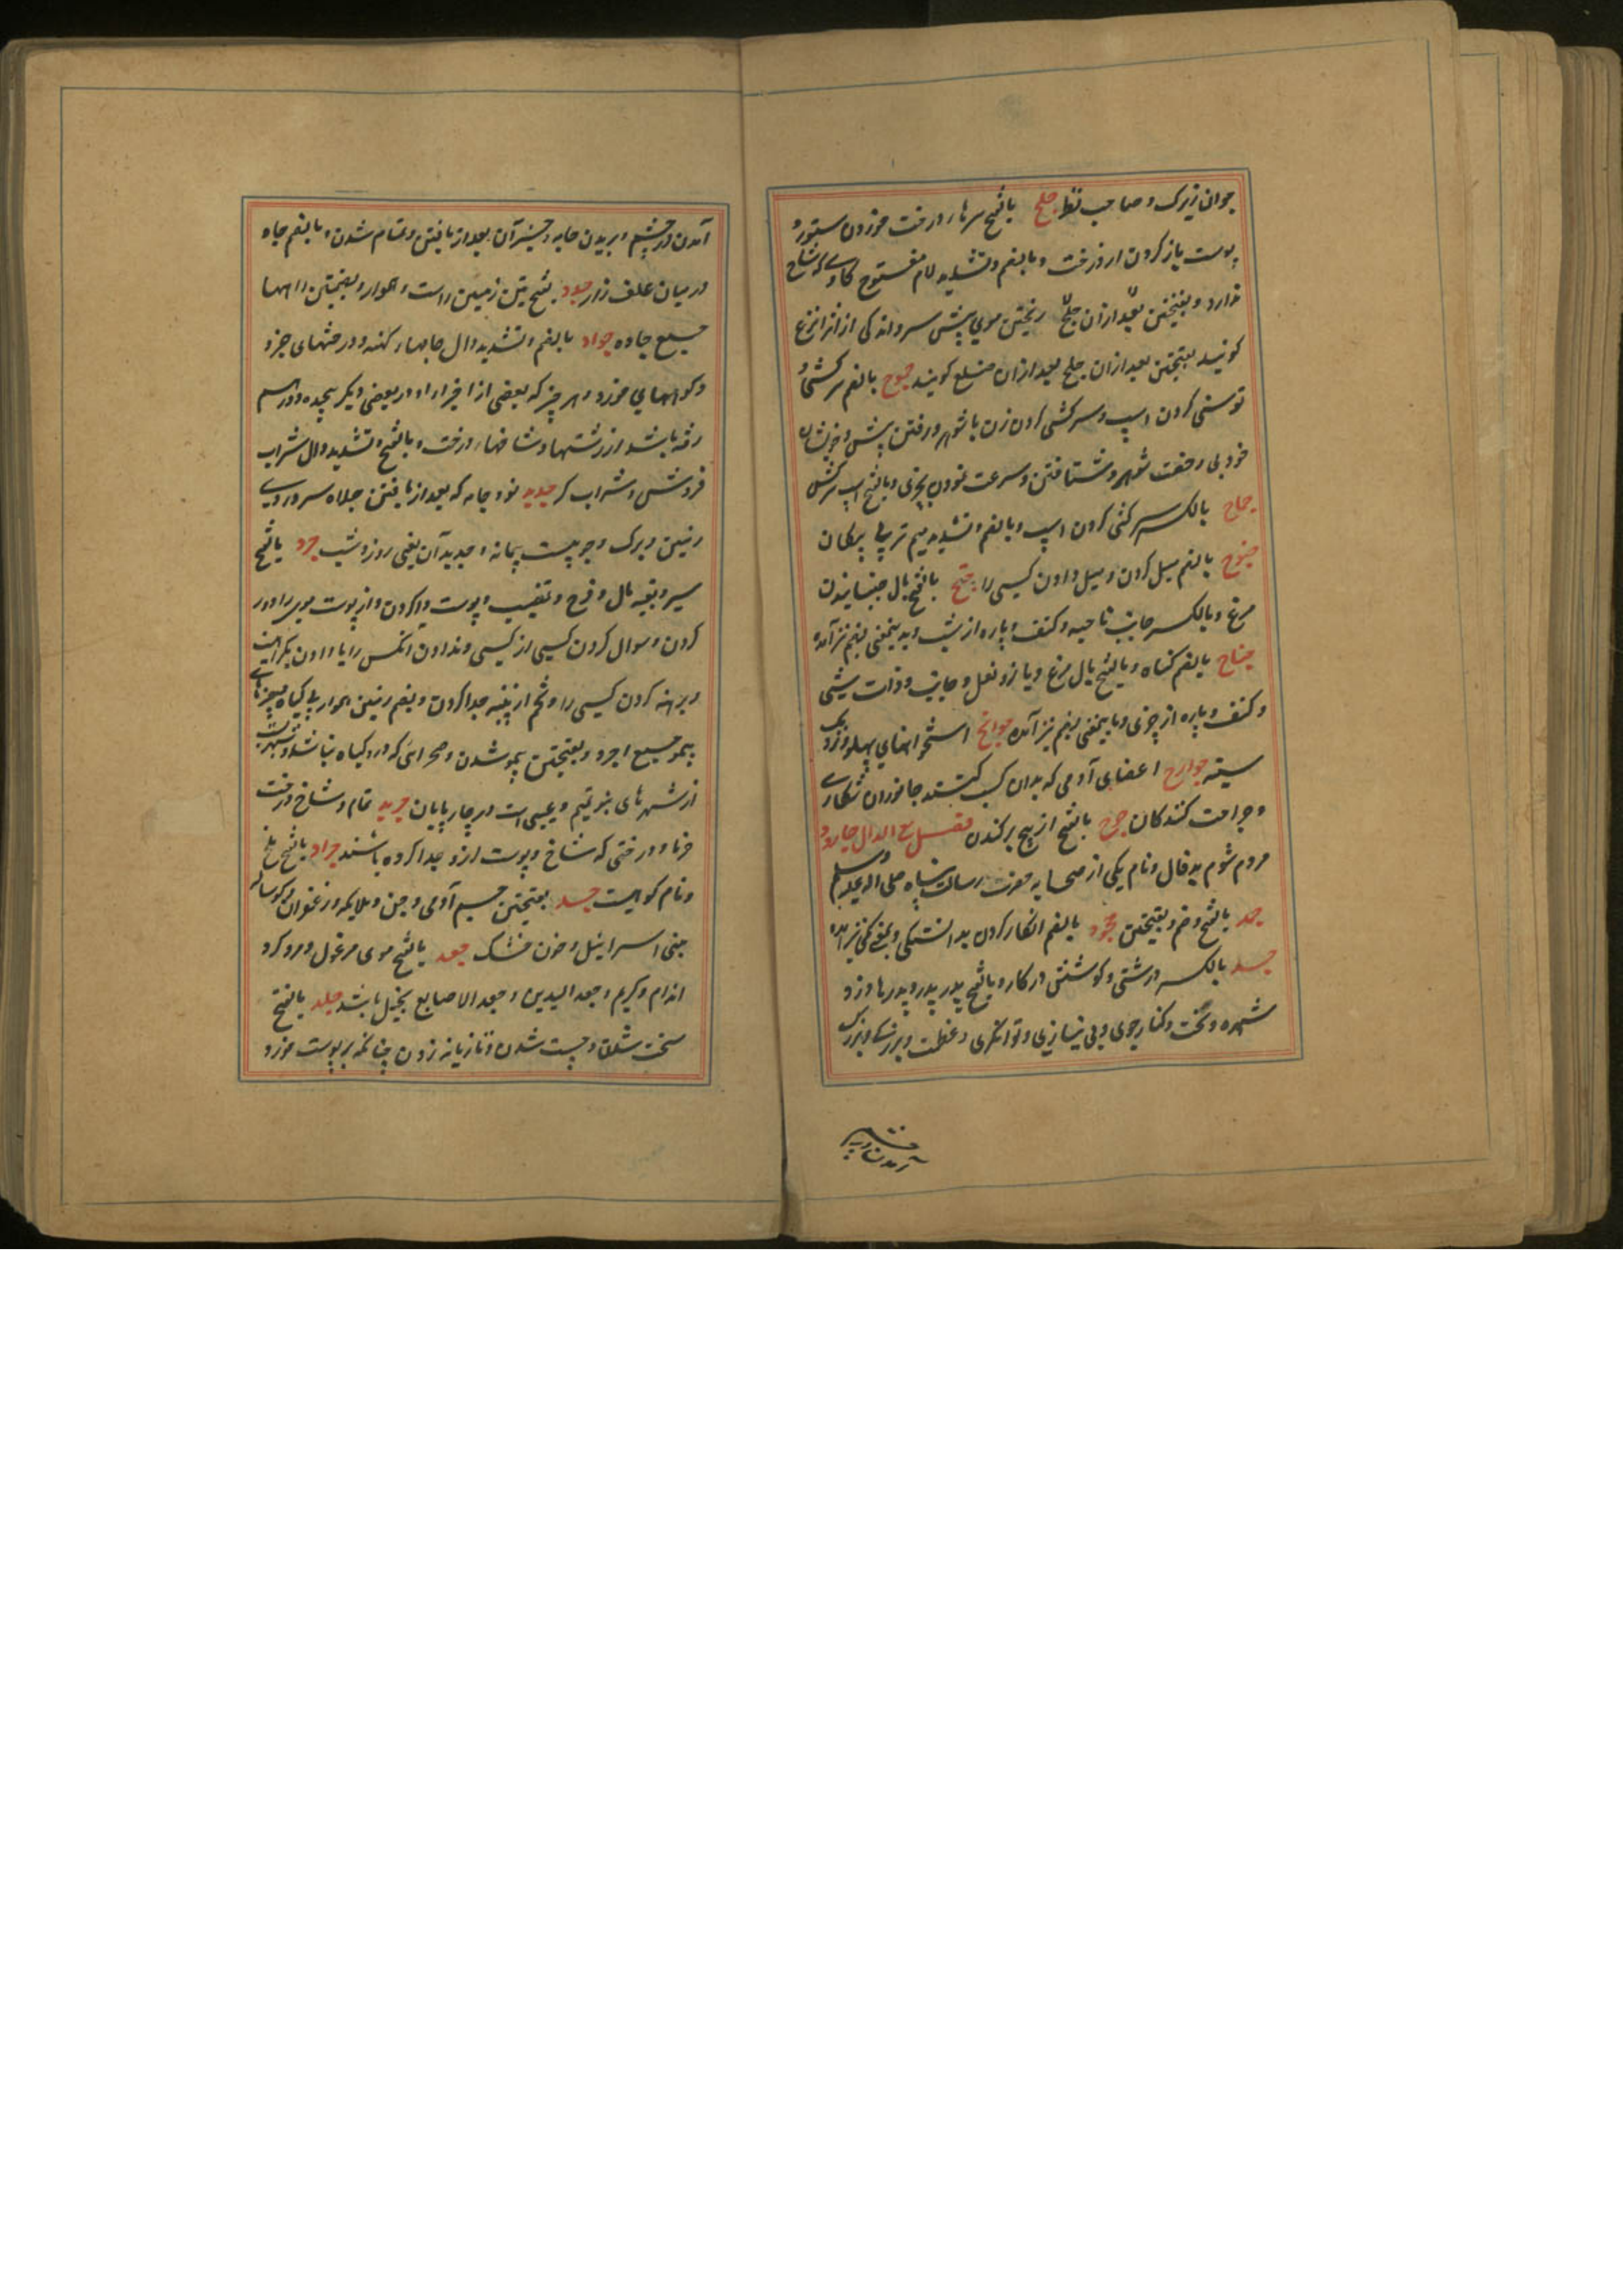 جوان زیرک و صاحب نظر جلح بالفتح سرهاء درخت خوردن ستور و
پوست باز کردن از درخت و بالضم و تشدید لام مفتوح کاوی که شاخ
ندارد و بفتحتین بعد از آن جلح ریختن موی پیش سر و اندکی از آنرا نزع
کویند بفتحتین بعد از آن جلح بعد از آن صلع کویند جموح بالضم سرکشی و
توسنی کردن اسپ و سرکشی کردن زن با شوهر و رفتن پیش خویشان
خود بی رخصت شوهر و شتافتن و سرعت نمودن بچیزی و بالفتح اسپ سرکش
جماح بالکسر سرکشی کردن اسپ و بالضم و تشدید میم تر بی پیکان
جنوح بالضم میل کردن و میل دادن کسی را جنح بالفتح بال جنبانیدن
مرغ و بالکسر جانب ناحیه و کنف و پاره از شب و بدینمعنی بضم نیز آمده
جناح بالضم کناه و بالفتح بال مرغ و بازو و بغل و جانب و ذات شیئی
و کنف و پاره از چیزی و بایمعنی بضم نیز آمده جوانح استخوانهای پهلو نزدیک
سینه جوارح اعضای آدمی که بدان کسب کنند جانوران شکاری
و جراحت کنندکان جوح بالفتح از بیخ برکندن فصل مع الدال جارود
مردم شوم بدفال و نام یکی از صحابه حضرت رسالت پناه صلی الله علیه و سلم
جحد بالفتح و ضم و بفتحتین جحود بالضم انکار کردن بدانستکی و بمعنی کمی نیز آمده
جد بالکسر درشتی و کوشش در کار و بالفتح پدر پدر و پدر مادر و
شهره و بخت و کنار جوی و بی نیازی و توانکری و عظمت و بزرکی و بزرک
آمدن در چشم و بریدن جامه و جز آن بعد از بافتن و تمام شدن و بالضم چاه
در میان علف زار جدد بفتحتین زمین راست و هموار و بضمتین راهها
جمع جاده جداد بالضم و تشدید دال جامهاء کهنه و درختهای خرد
و کوههای خورد و هر چیز که بعضی از اجزاء او در بعضی دیکر پیچیده و در هم
رفته باشد از رشتها و شاخهاء درخت و بالفتح و تشدید دال شراب
فروش و شراب کر جدید نو و جامه که بعد از بافتن جلاه سر و روی
زمین و مرک و جدیدان یعنی روز و شب جرد بالفتح
سپر و بقیه مال و فرج و قضیب و پوست وا کردن و از پوست موی را دور
کردن و سوال کردن کسی از کسی و ندادن آنکس را یا دادن بکراهیت
و برهنه کردن کسی را و تخم از پنبه جدا کردن و بضم زمین هموار بی کیاه و چیزهای
بیمو جمع اجرد و بفتحتین بیمو شدن و صحرائی که درو کیاه نباشد و شهریست
از شهرهای بنو تمیم و عیبی است در چارپایان جرید تمام و شاخ درخت
خرما و درختی که شاخ و پوست ازو جدا کرده باشند جراد بالفتح ملخ
و نام کوهیست جسد بفتحتین جسم آدمی و جن و ملایکه و زعفران و کوساله
بنی اسرائیل و خون خشک جعد بالفتح موی مرغول و مرد کرد
اندام و کریم و جعد الیدین و جعد الاصابع بخیل باشد جلد بالفتح
سخت شدن و چست شدن و تازیانه زدن چنانکه بر پوست خورد